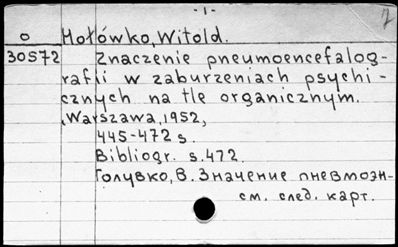 - 1 -
o Mołówko, Witold.
30572 Znaczenie pneumoencefalog-
rafii w zaburzeniach psychi-
cznych na tle organicznym.
Warszawa, 1952,
445-472 s.
Bibliogr. s. 472.
Голувко, В. Значение пневмоэн-
см. след. карт.